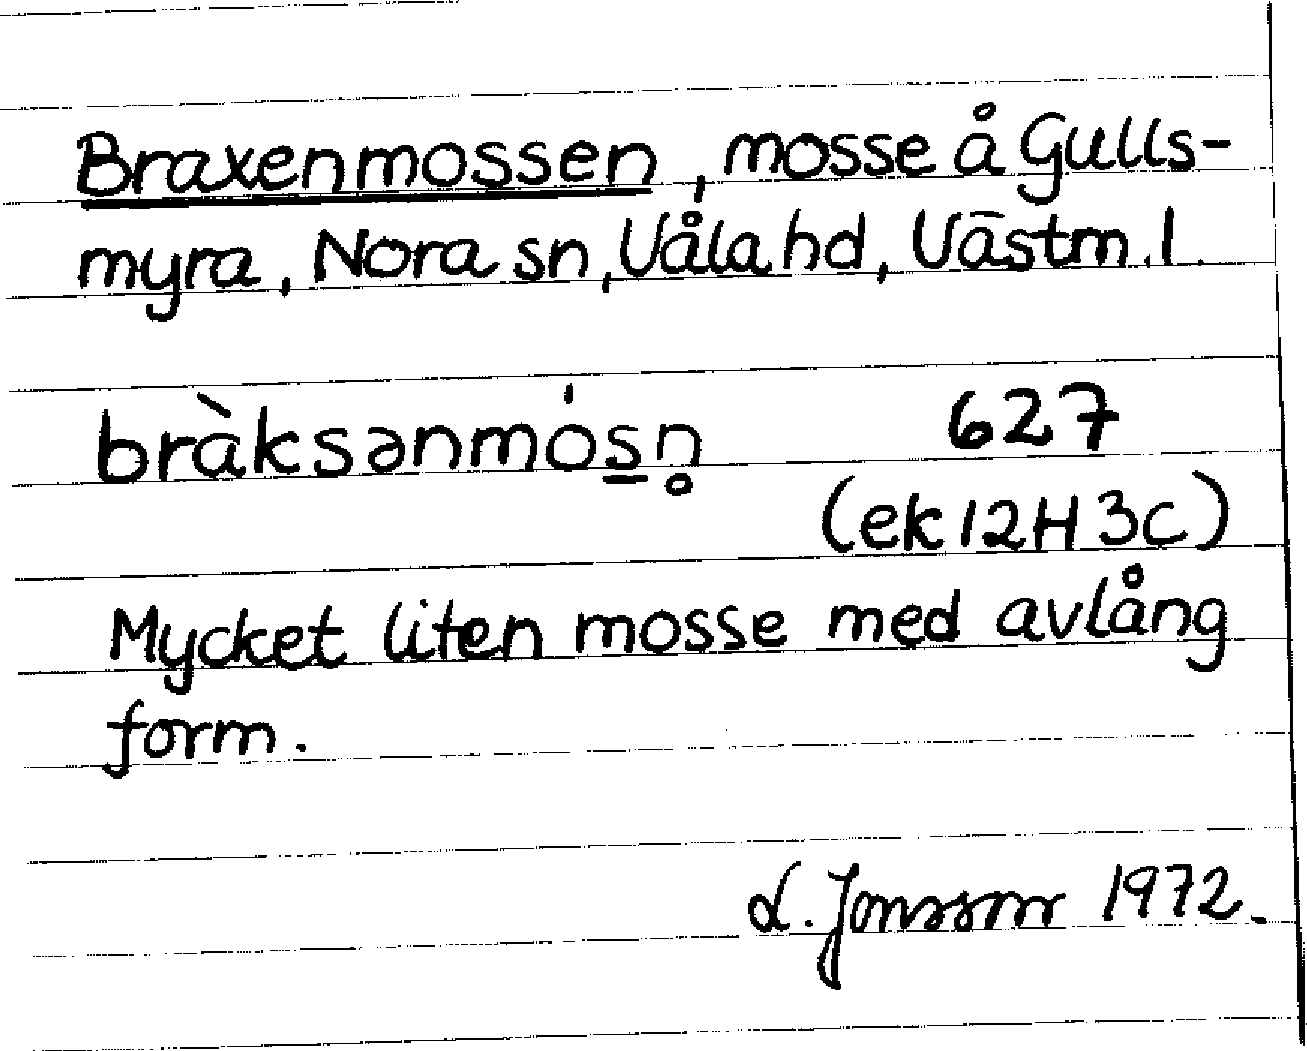 Braxenmossen, mosse å Gulls-
myra, Nora sn, Våla hd, Västm. l.
bràksənmós̲n̥ 627
(ek 12H 3c)
Mycket liten mosse med avlång
form.
L. Jonsson 1972.